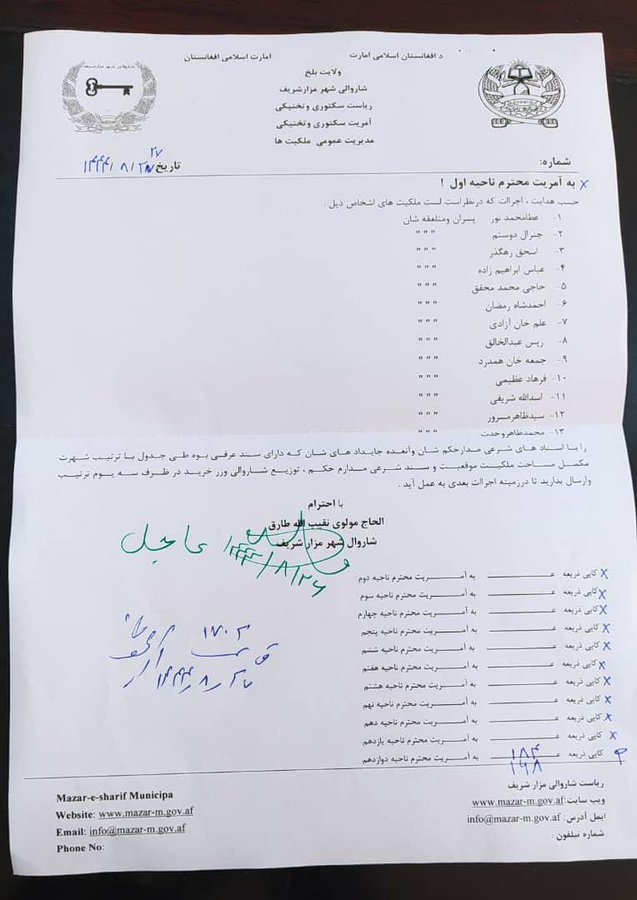 د افغانستان اسلامي امارت
امارت اسلامی افغانستان
ولایت بلخ
شاروالی شهر مزارشریف
ریاست سکتوری وتخنیکی
آمریت سکتوری وتخنیکی
مدیریت عمومی ملکیت ها
شماره:
تاریخ ۱۴۴۴/۸/
به آمریت محترم ناحیه اول !
حسب هدایت ، اجراات که درنظراست لست ملکیت های اشخاص ذیل .
۱- عطامحمد نور پسران ومتعلقه شان
۲- جنرال دوستم " " "
۳- اسحق رهگذر " " "
۴- عباس ابراهیم زاده " " "
۵- حاجی محمد محقق " " "
۶- احمدشاه رمضان " " "
۷- علم خان آزادی " " "
۸- ریس عبدالخالق " " "
۹- جمعه خان همدرد " " "
۱۰- فرهاد عظیمی " " "
۱۱- اسدالله شریفی " " "
۱۲- سیدظاهرمسرور " " "
۱۳- محمدظاهروحدت " " "
را با اسناد های شرعی مدارحکم شان وآنعده جایداد های شان که دارای سند عرفی بوه طی جدول با ترتیب شهرت
مکمل مساحت ملکیت موقعیت و سند شرعی مدارم حکم ، توزیع شاروالی وزر خرید در ظرف سه یوم ترتیب
وارسال بدارید تا درزمینه اجراات بعدی به عمل آید .
با احترام
الحاج مولوی نقیب الله طارق
شاروال شهر مزار شریف
عاجل
۱۴۴۴/۸/۲۶
۱۷۰۳
۱۴۴۴/۸/۲۷
کاپی ذریعه عـ به آمـریت محترم ناحیه دوم
کاپی ذریعه عـ به آمـریت محترم ناحیه سوم
کاپی ذریعه عـ به آمـریت محترم ناحیه چهارم
کاپی ذریعه عـ به آمـریت محترم ناحیه پنجم
کاپی ذریعه عـ به آمـریت محترم ناحیه ششم
کاپی ذریعه عـ به آمـریت محترم ناحیه هفتم
کاپی ذریعه عـ به آمـریت محترم ناحیه هشتم
کاپی ذریعه عـ به آمـریت محترم ناحیه نهم
کاپی ذریعه عـ به آمـریت محترم ناحیه دهم
کاپی ذریعه عـ به آمـریت محترم ناحیه یازدهم
کاپی ذریعه عـ ۱۸۴ به آمـریت محترم ناحیه دوازدهم
۱۹۸
ریاست شاروالی مزار شریف
ویب سایت:www.mazar-m.gov.af
ایمل آدرس: info@mazar-m.gov.af
شماره تیلفون
Mazar-e-sharif Municipa
Website: www.mazar-m.gov.af
Email: info@mazar-m.gov.af
Phone No: